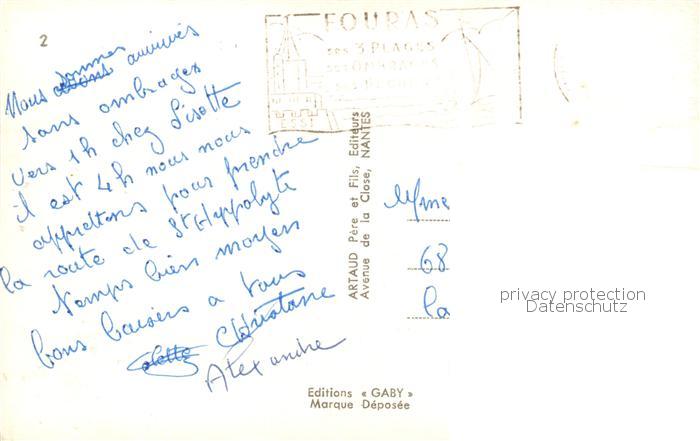 2
FOURAS
SES 3 PLAGES
SES OMBRAGES
Nous sommes arrivés
sans ombrages
vers 1h chez Lisette
il est 4h nous nous
apprêtons pour prendre
la route de St Hippolyte
temps bien moyen
bons baisers a vous
Colette Christiane
Alexandre
ARTAUD Père et Fils, Editeurs
Avenue de la Close, NANTES
Mme
68
la
privacy protection
Datenschutz
Editions « GABY »
Marque Déposée